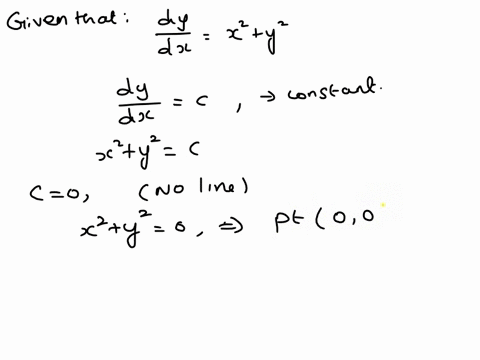 Given that: dy/dx = x²+y²
dy/dx = c , → constant.
x²+y² = c
C=0, (No line)
x²+y² = 0, ⇒ pt (0,0